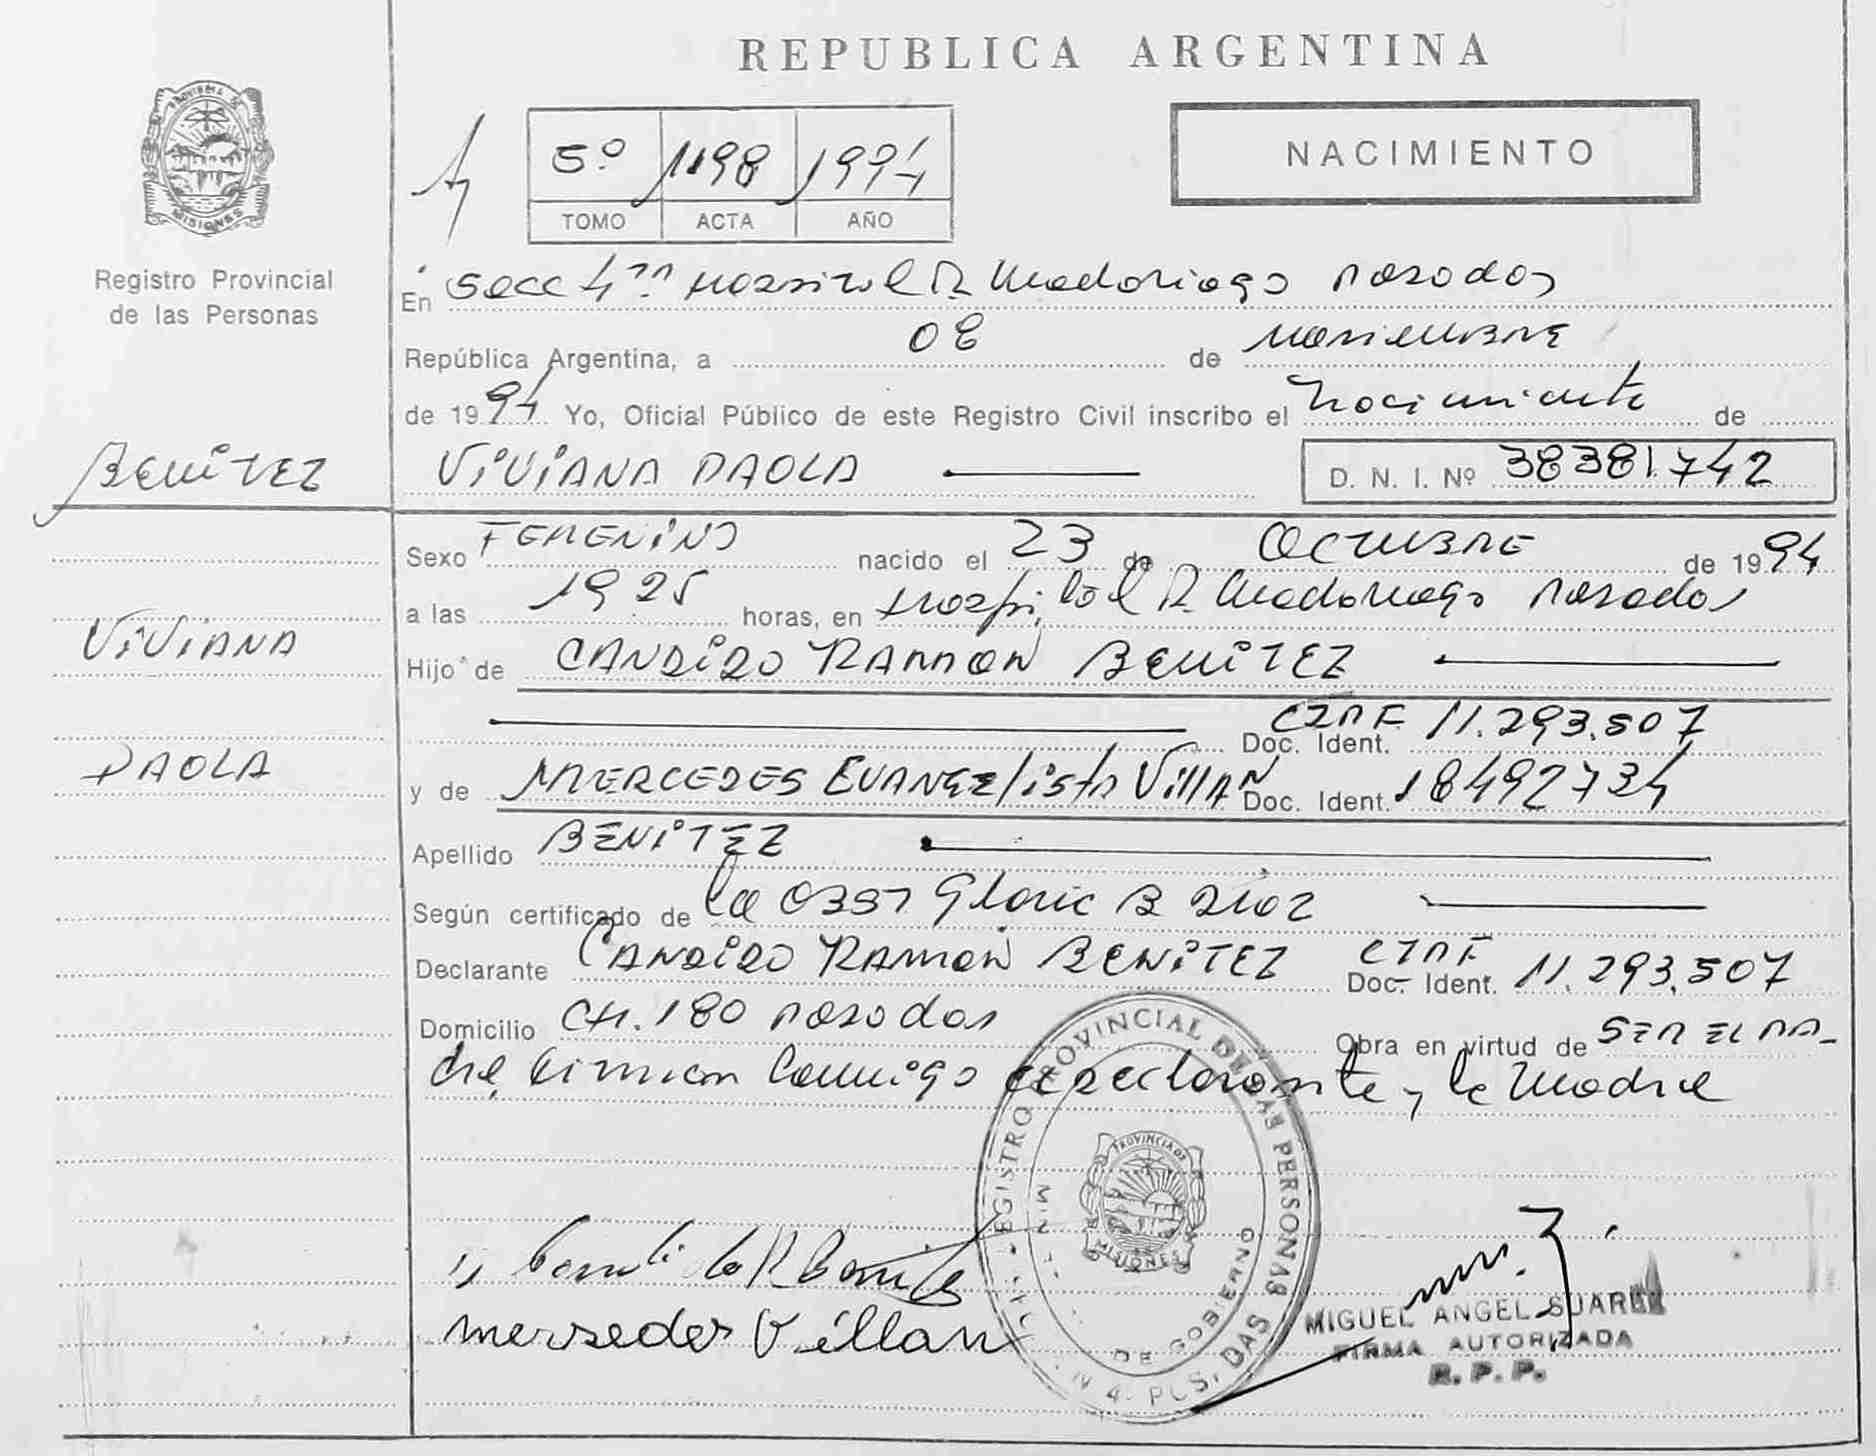 REPUBLICA ARGENTINA
PROVINCIA DE
MISIONES
Registro Provincial
de las Personas
5º 1198 1994
TOMO ACTA AÑO
NACIMIENTO
En Secc 4ta Hospital R. Madariaga Posadas
República Argentina, a 08 de Noviembre
de 1994 Yo, Oficial Público de este Registro Civil inscribo el Nacimiento de
BENITEZ
VIVIANA PAOLA
D. N. I. Nº 38381.742
Sexo FEMENINO nacido el 23 de OCTUBRE de 1994
a las 19 25 horas, en Hospital R. Madariaga Posadas
VIVIANA
Hijo de CANDIDO RAMON BENITEZ
Doc. Ident. 11.293.507
PAOLA
y de MERCEDES EVANGElistA VillAN Doc. Ident. 18492734
Apellido BENITEZ
Según certificado de la Obst Gloria B Diaz
Declarante CANDIDO RAMON BENITEZ Doc. Ident. 11.293.507
Domicilio CH. 180 Posadas Obra en virtud de SER EL PA-
dre firman conmigo el declarante y la Madre
REGISTRO PROVINCIAL DE LAS PERSONAS
PROVINCIA DE
MISIONES
DE GOBIERNO
Nº 4 PCS. DAS
Candido R Benitez
mersedes Villan
MIGUEL ANGEL SUAREZ
FIRMA AUTORIZADA
R. P. P.